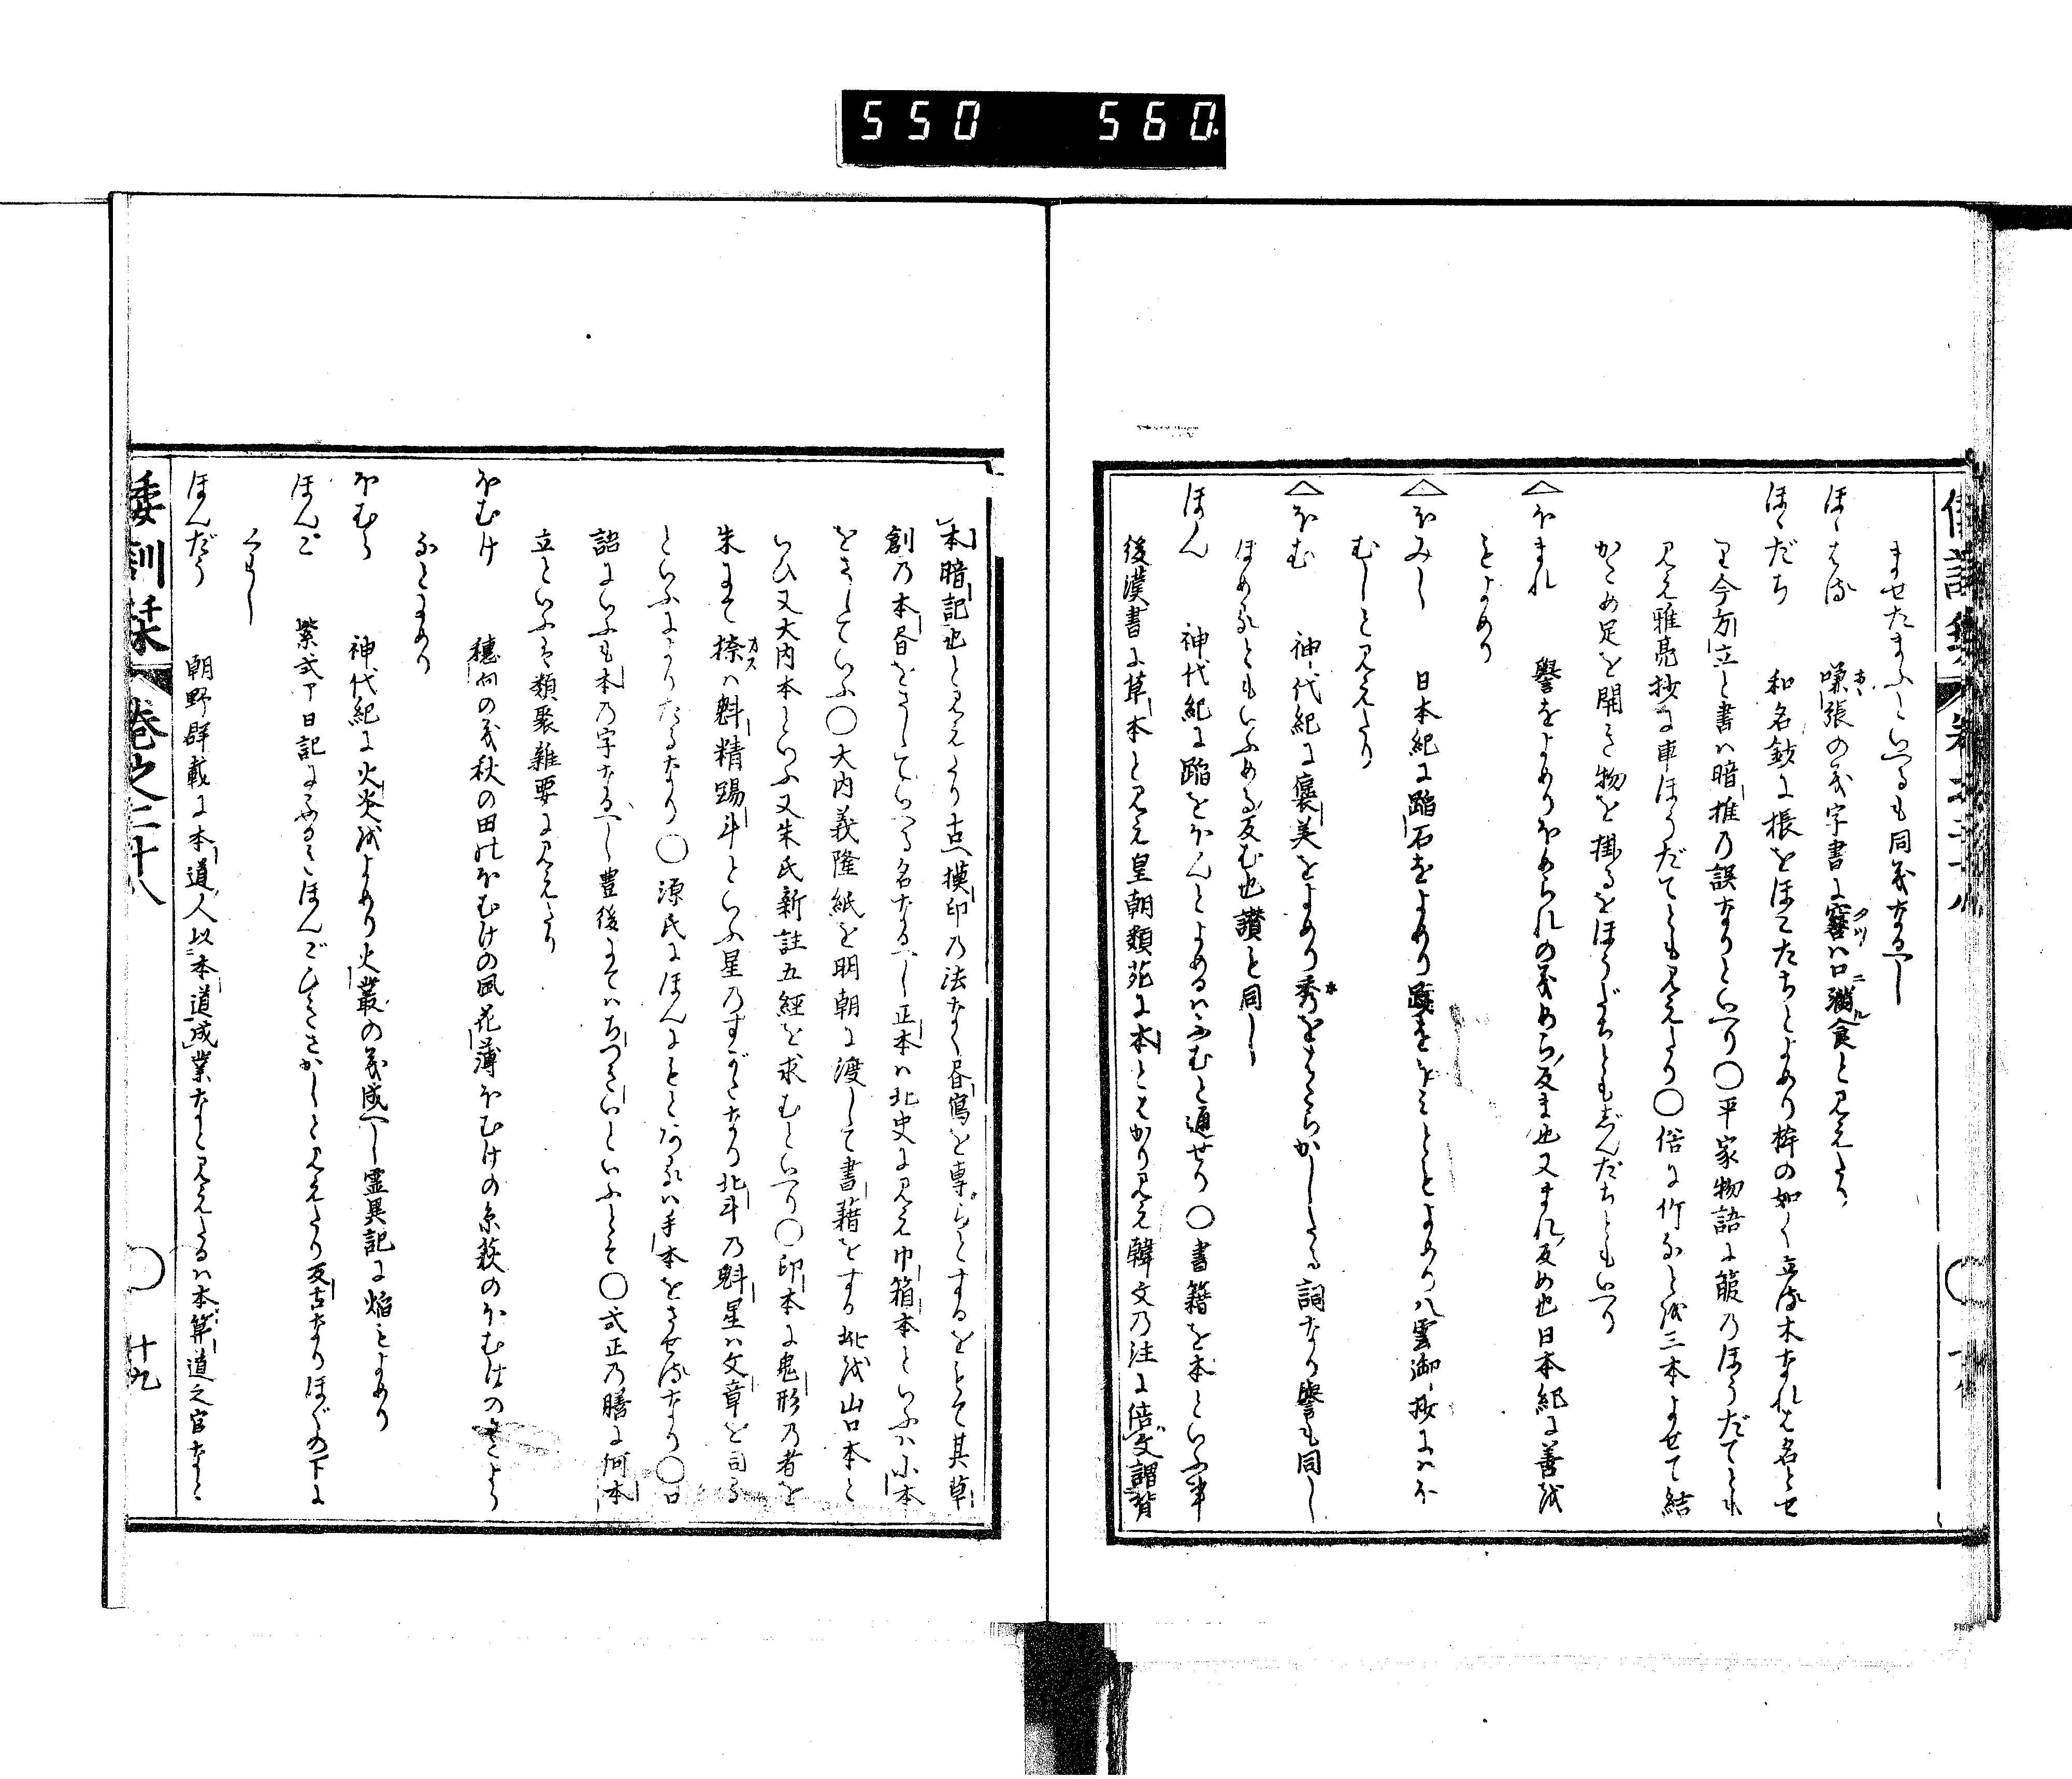 550 560
ませたまふといへるも同義なるへし
ほゝはる 嗛張の義字書に窖ハ口滿食と見えたり
ほゝだち 和名鈔に棖をほこたちとよめり桙の如く立る木なれは名とせ
り今方立と書ハ暗推の誤なりといへり○平家物語に箙のほうだてとも
見え雅亮抄に車ほうだてとも見えたり○俗に竹なとを三本よせて結
かゝめ足を開き物を掛るをほうだちともぢんだちともいへり
△ほまれ 譽をよめりほめられの義めら反ま也又まれ反め也日本紀に善を
もよめり
△ほみし 日本紀に蹈石をよめり踐をほみことよめり八雲御抄にハほ
むしと見えたり
△ほむ 神代紀に褒美をよめり秀をはたらかしたる詞なり譽も同し
ほめるともいふめる反む也讃も同し
ほん 神代紀に蹈をほんとよめるハふむと通せり○書籍を本といふ事
後漢書に草本と見え皇朝類苑に本とはかり見え韓文の注に倍文謂背
本暗記也と見えたり古へ摸印の法なく昼寫を専らとするをもて其草
創の本昼をさしていへる名なるへし正本ハ北史に見え巾箱本といふハ小本
をさしていふ○大内義隆紙を明朝に渡して書籍をする此を山口本と
いひ又大内本といふ又朱氏新註五經を求むといへり○印本に鬼形の者を
朱にて捺ハ魁精踢斗といふ星のすがたなり北斗の魁星ハ文章を司る
といふによりたるなり○源氏にほんにもとあるハ手本をさせるなり○口
詔にいふも本の字なるへし豊後にてハちつさいといふとそ○式正の膳に何本
立といふは類聚雜要に見えたり
ほむけ 穗向の義秋の田のほむけの風花薄ほむけの糸萩のほむけのさとよう
なとよめり
ほむら 神代紀に火炎をよめり火叢の義成へし霊異記に焔もよめり
ほんご 紫式部日記にふるきほんごひきさかしと見えたり反古なりほぐの下に
くはし
ほんだう 朝野群載に本道人以本道成業なと見えたるハ本算道之官なと
倭訓栞 卷之二十八 ○ 十九